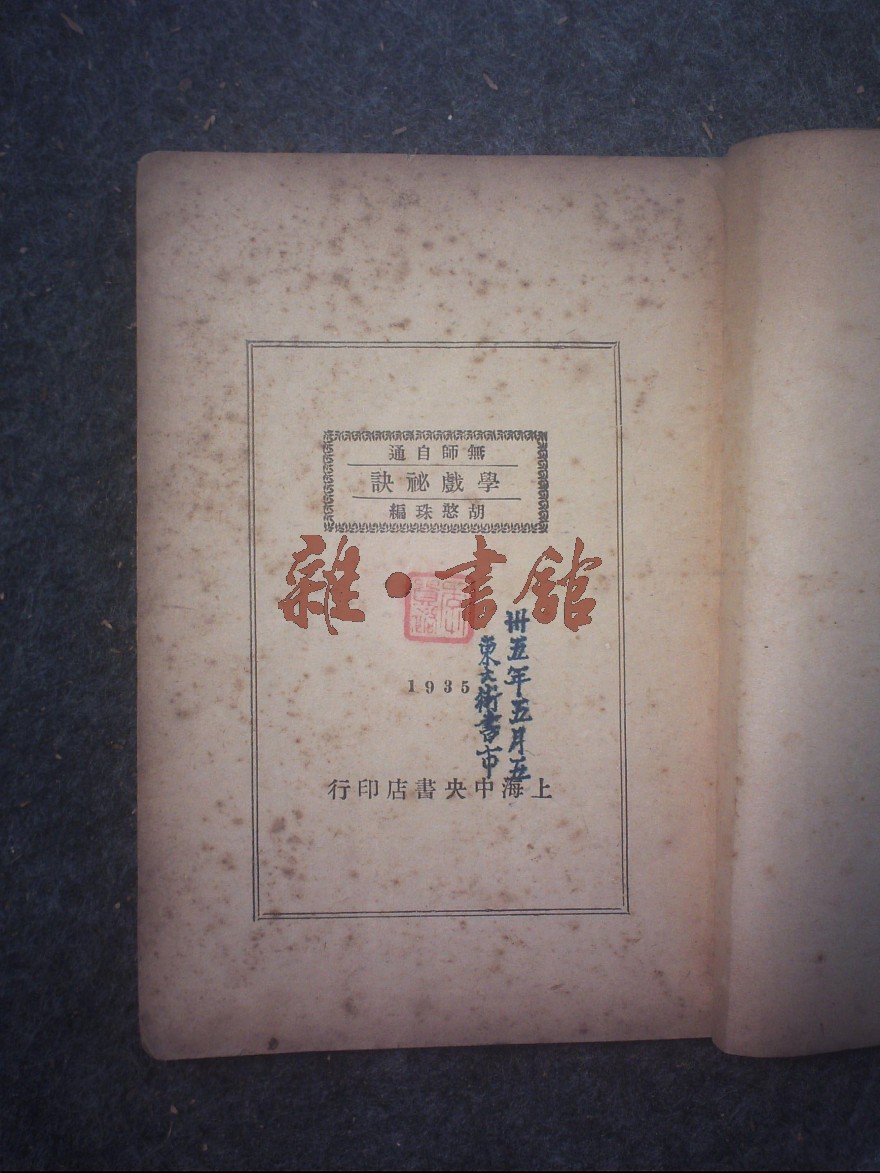 無師自通
學戲祕訣
胡憨珠編
雜·書舘
卅五年五月五
東大街書市
1935
上海中央書店印行